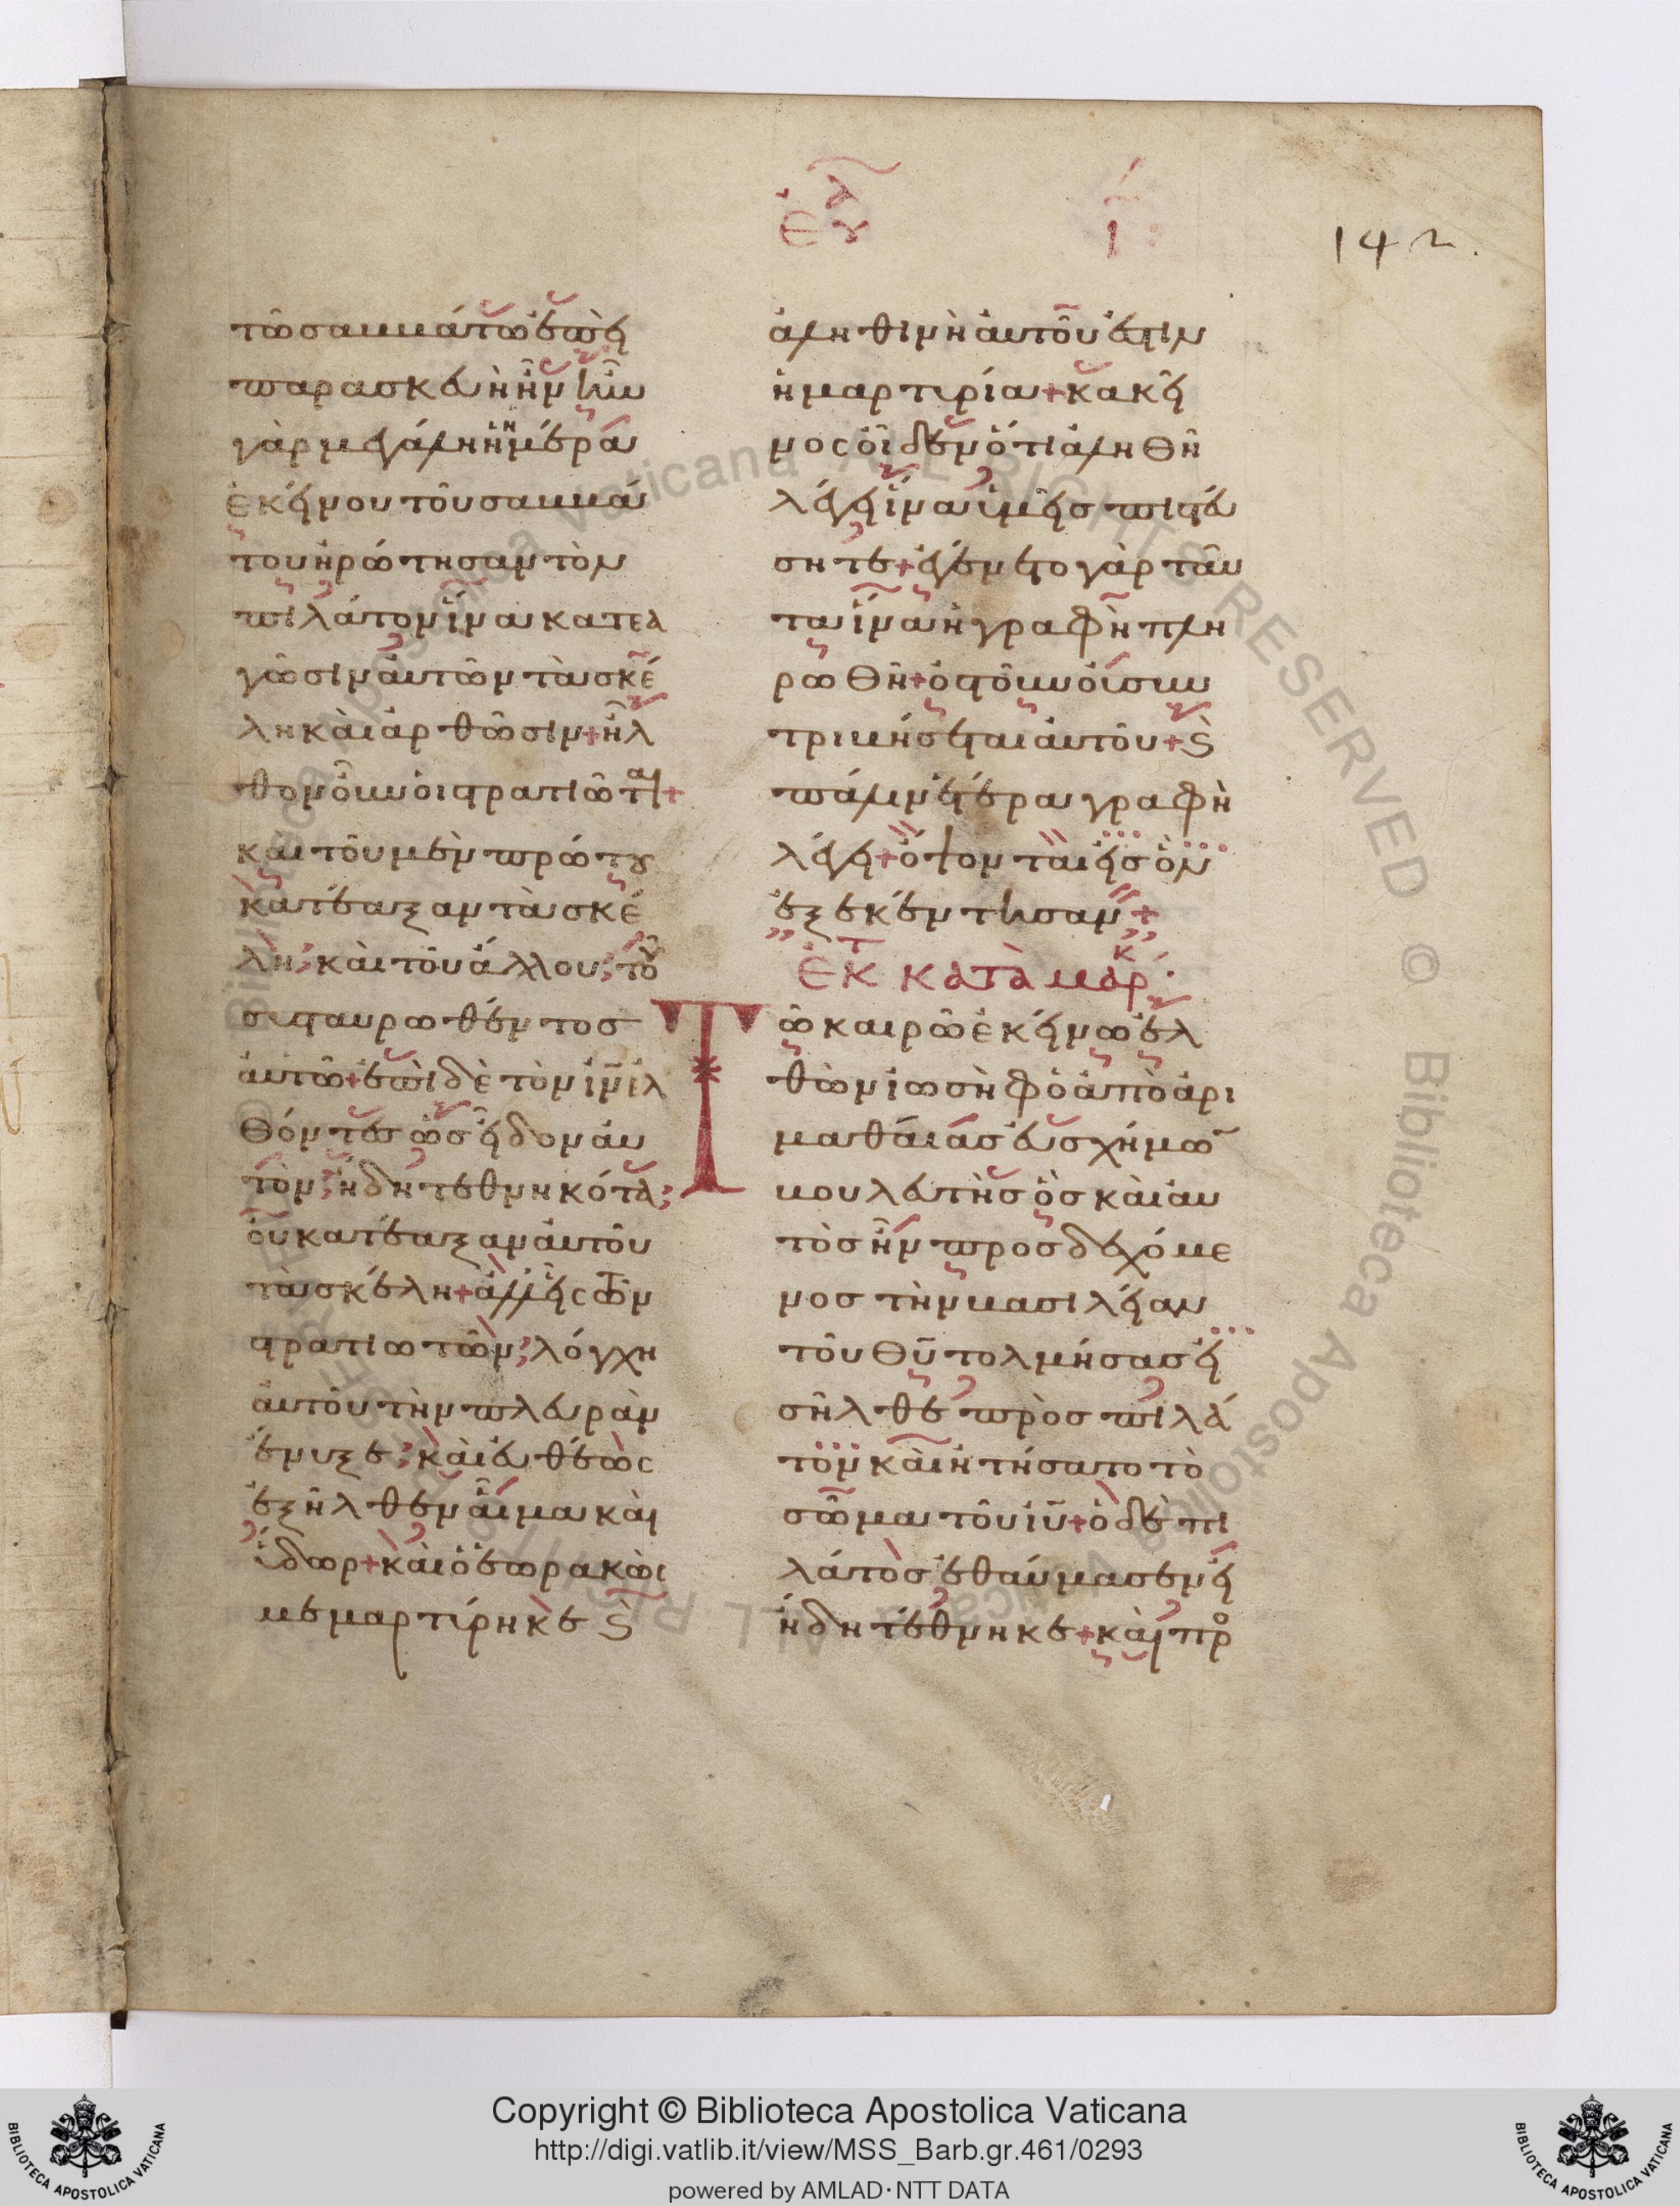 ἐυ αγ ι:
142.
τῶ σαββάτω ἐπεὶ
παρασκευὴ ἦν ἦν
γὰρ μεγάλη ἡ ἡμέρα
ἐκείνου τοῦ σαββά
του ἠρώτησαν τὸν
πιλάτον ἵνα κατεα
γῶσιν αὐτῶν τὰ σκέ
λη καὶ ἀρθῶσιν + ἦλ
θον οὖν οἱ στρατιῶται +
καὶ τοῦ μὲν πρώτου
κατέαξαν τὰ σκέ
λη; καὶ τοῦ ἄλλου; τοῦ
συσταυρωθέντος
αὐτῶ + ἐπὶ δὲ τὸν ιν ἐλ
θόντες ὡς εἶδον αὐ
τὸν; ἤδη τεθνηκότα;
οὐ κατέαξαν αὐτοῦ
τὰ σκέλη + ἀλλ' εἷς τῶν
στρατιωτῶν; λόγχη
αὐτοῦ τὴν πλευρὰν
ἔνυξε; καὶ εὐθέως
ἐξῆλθεν αἷμα καὶ
ὕδωρ + καὶ ὁ ἑωρακὼς
μεμαρτύρηκε ϗ
ἀληθινὴ αὐτοῦ ἐστιν
ἡ μαρτιρία + κακεῖ
νος οἶδεν ὅτι ἀληθῆ
λέγει ἵνα ὑμεῖς πιστεύ
σητε + ἐγένετο γὰρ ταῦ
τα ἵνα ἡ γραφὴ πλη
ρωθῆ + ὀστοῦν οὐ συν
τριβήσεται αὐτοῦ + ϗ
πάλιν ἑτέρα γραφὴ
λέγει + ὄψονται εἰς ὃν
ἐξεκέντησαν +
ἐκ τ κατὰ μάρκ
Τῶ καιρῶ ἐκείνω ἐλ
θὼν ἰωσὴφ ὁ ἀπὸ ἀρι
μαθαίας εὐσχήμω
βουλευτὴς ὃς καὶ αὐ
τὸς ἦν προσδεχόμε
νος τὴν βασιλείαν
τοῦ θυ τολμήσας εἰ
σῆλθε πρὸς πιλά
τον καὶ ἠτήσατο τὸ
σῶμα τοῦ ιυ + ὁ δὲ πι
λάτος ἐθαύμασεν εἰ
ἤδη τέθνηκε + καὶ προ
Copyright © Biblioteca Apostolica Vaticana
http://digi.vatlib.it/view/MSS_Barb.gr.461/0293
powered by AMLAD·NTT DATA
BIBLIOTECA APOSTOLICA VATICANA
BIBLIOTECA APOSTOLICA VATICANA
© Biblioteca Apostolica Vaticana ALL RIGHTS RESERVED © Biblioteca Apostolica Vaticana ALL RIGHTS RESERVED